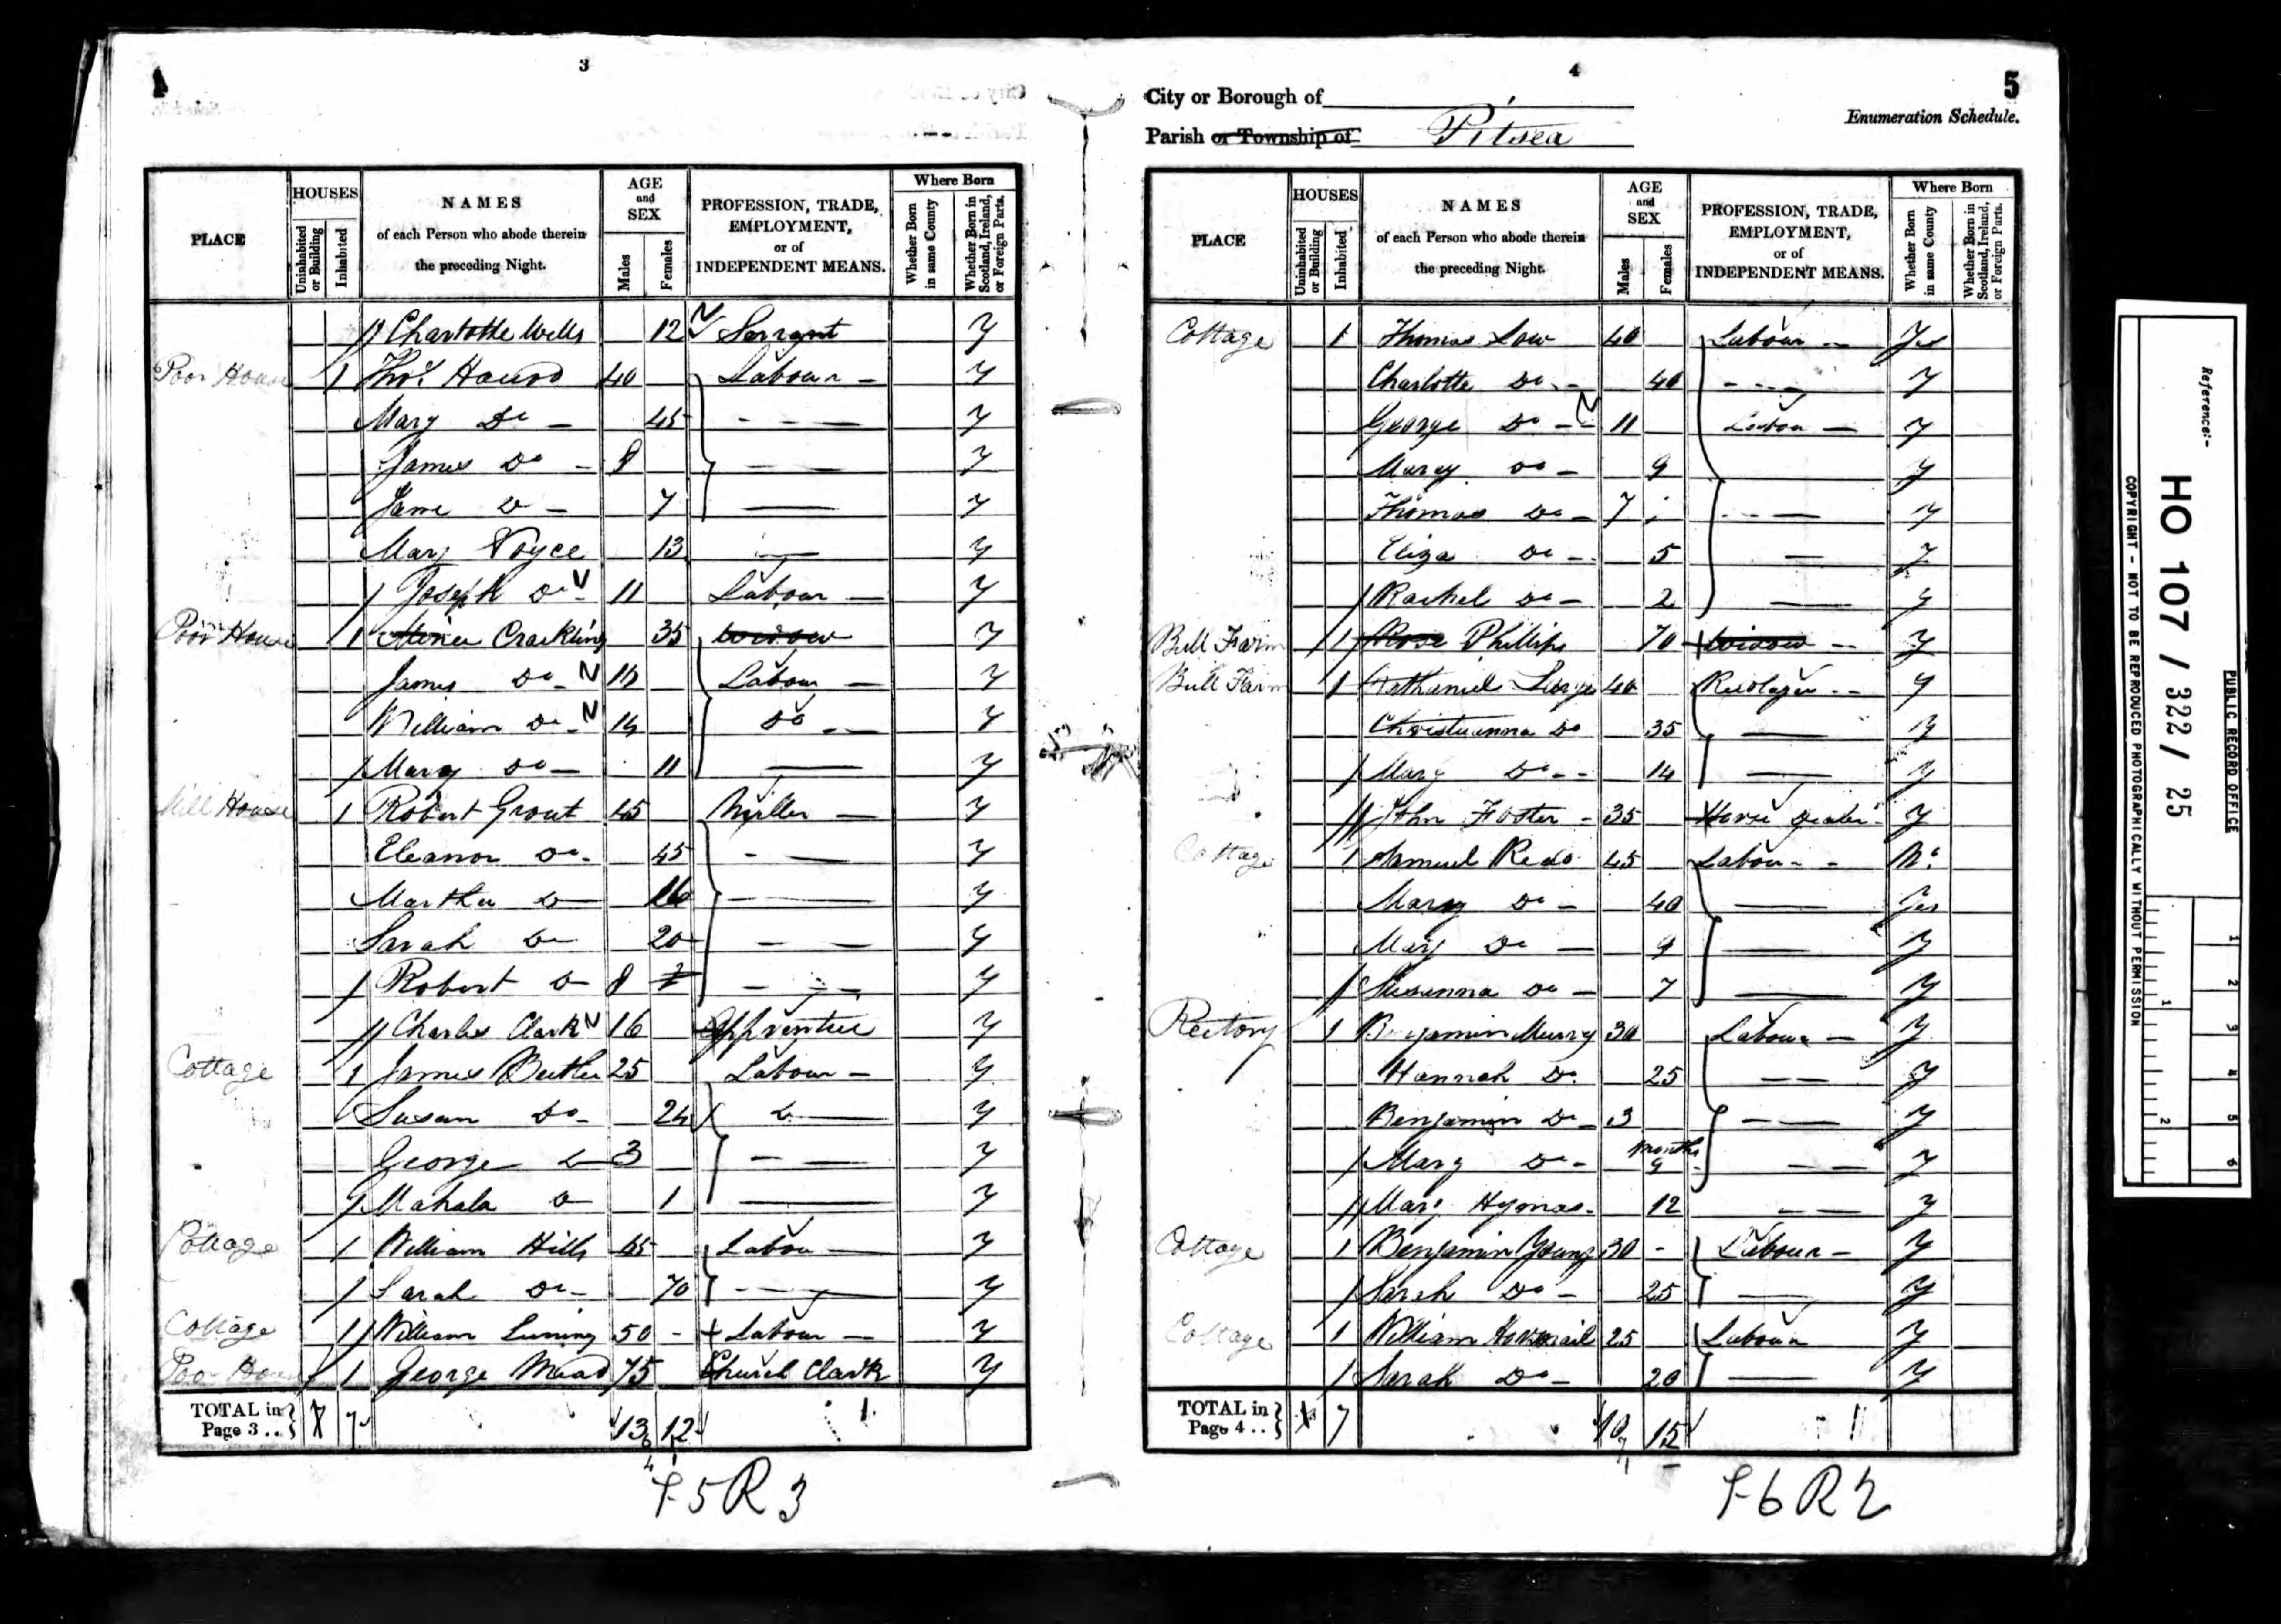 3
PLACE
HOUSES
Uninhabited or Building
Inhabited
NAMES
of each Person who abode therein
the preceding Night.
AGE
and
SEX
Males
Females
PROFESSION, TRADE,
EMPLOYMENT,
or of
INDEPENDENT MEANS.
Where Born
Whether Born in same County
Whether Born in Scotland, Ireland, or Foreign Parts.
Charlotte Wells 12 Servant y
Poor House 1 Thos 40 Labour - y
Mary Do - 45 - - - y
James Do - 8 - - y
Jane Do - 7 - y
Mary Voyce 13 - y
Joseph Do - 11 Labour - y
Poor House 1 Crackling 35 widow y
James Do - Labour - y
William Do - 14 Do - y
Mary Do - 11 - y
Mill House 1 Robert Grout 45 Miller - y
Eleanor Do - 45 - - y
Martha Do - - y
Sarah Do - 20 - - y
Robert Do - 8 - - - y
Charles Clark 16 Apprentice y
Cottage 1 James 25 Labour - y
Susan Do - 24 - y
George Do 3 - - y
Mahala Do - 1 - y
Cottage 1 William Hills 45 Labou - y
Sarah Do - 70 - - y
Cottage 1 William 50 - Labour - y
Poor House 1 George Mead 75 Church Clark y
TOTAL in
Page 3 . .
7 13 12 1
F5R3
4
5
City or Borough of
Enumeration Schedule.
Parish or Township of Pitsea
PLACE
HOUSES
Uninhabited or Building
Inhabited
NAMES
of each Person who abode therein
the preceding Night.
AGE
and
SEX
Males
Females
PROFESSION, TRADE,
EMPLOYMENT,
or of
INDEPENDENT MEANS.
Where Born
Whether Born in same County
Whether Born in Scotland, Ireland, or Foreign Parts.
Cottage 1 Thomas Low 40 Labour - Yes
Charlotte Do - 40 - - - y
George Do - 11 Labou - y
Marey Do - 9 y
Thomas Do - 7 - - - y
Eliza Do - 5 - y
Rachel Do - 2 - y
Bull Farm 1 Phillips 70 widow - y
Bull Farm 1 Nathaniel 40 y
Christianna Do 35 - y
Mary Do - - 14 - y
John Foster - 35 Horse Dealer - y
Cottage 1 Samuel 45 Labou - - No
Mary Do - 40 - Yes
Mary Do - 9 - y
Susanna Do - 7 - y
Rectory 1 Benjamin Murry 30 Labour - y
Hannah Do. 25 - - y
Benjamin Do - 3 - - y
Mary Do - months 9 - - y
Mary Hymas - 12 - - y
Cottage 1 Benjamin Young 30 - Labour - y
Sarah Do - 25 - y
Cottage 1 William 25 Labour y
Sarah Do - 20 - y
TOTAL in
Page 4 . .
7 10 15
F6R2
Reference:-
HO 107 / 322 / 25
PUBLIC RECORD OFFICE
COPYRIGHT - NOT TO BE REPRODUCED PHOTOGRAPHICALLY WITHOUT PERMISSION
1 2 3 4 5 6
1 2